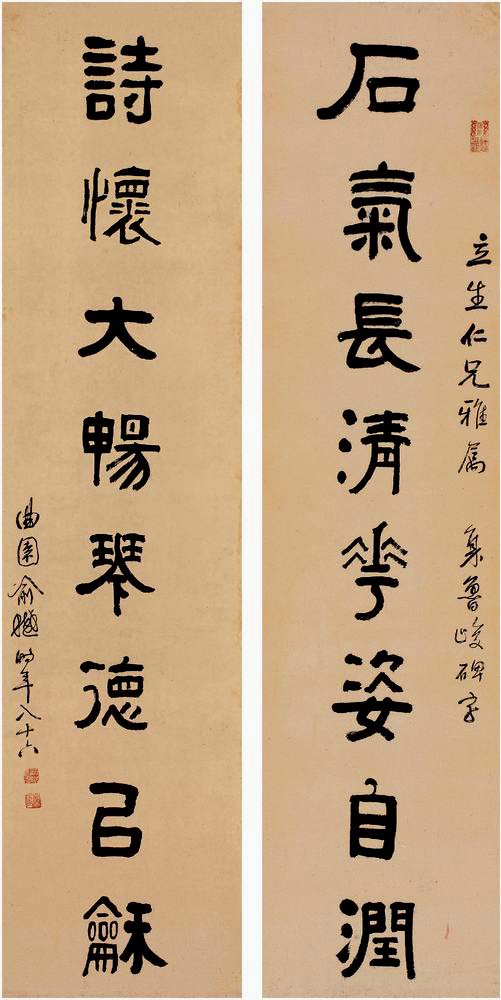 立生仁兄雅屬 集魯峻碑字
石氣長清華姿自潤
詩懷大暢琴德㠯龢
曲園俞樾時年八十六